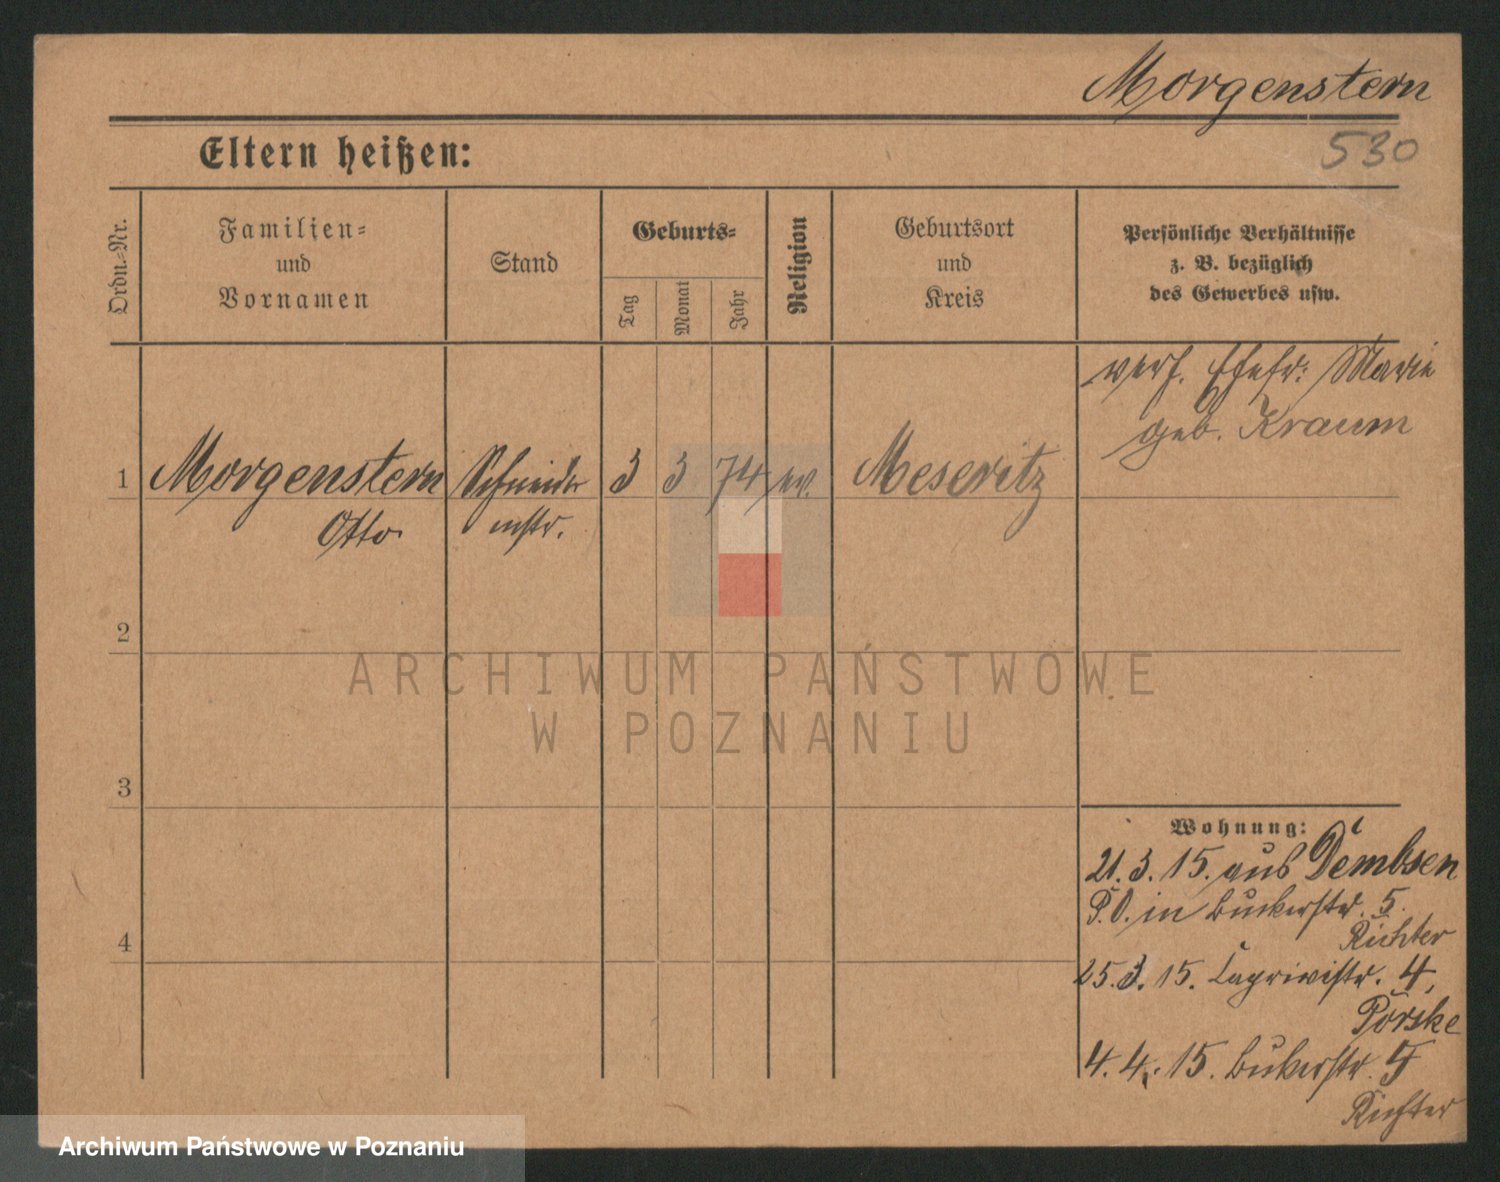 Morgenstern
530
Eltern heißen:
Ordn.=Nr.
Familien=
und
Vornamen
Stand
Geburts=
Tag
Monat
Jahr
Religion
Geburtsort
und
Kreis
Persönliche Verhältnisse
z. B. bezüglich
des Gewerbes usw.
verh. Ehefr: Marie
geb. Kraum
1
Morgenstern
Otto
Schneider
mstr.
3
3
74
ev.
Meseritz
2
3
4
Wohnung:
21. 3. 15. aus Dembsen
P.O. in Bukerstr. 5.
Richter
25. 3. 15. Caprivistr. 4,
Pörske
4. 4. 15. Bukerstr. 5
Richter
ARCHIWUM PAŃSTWOWE
W POZNANIU
Archiwum Państwowe w Poznaniu